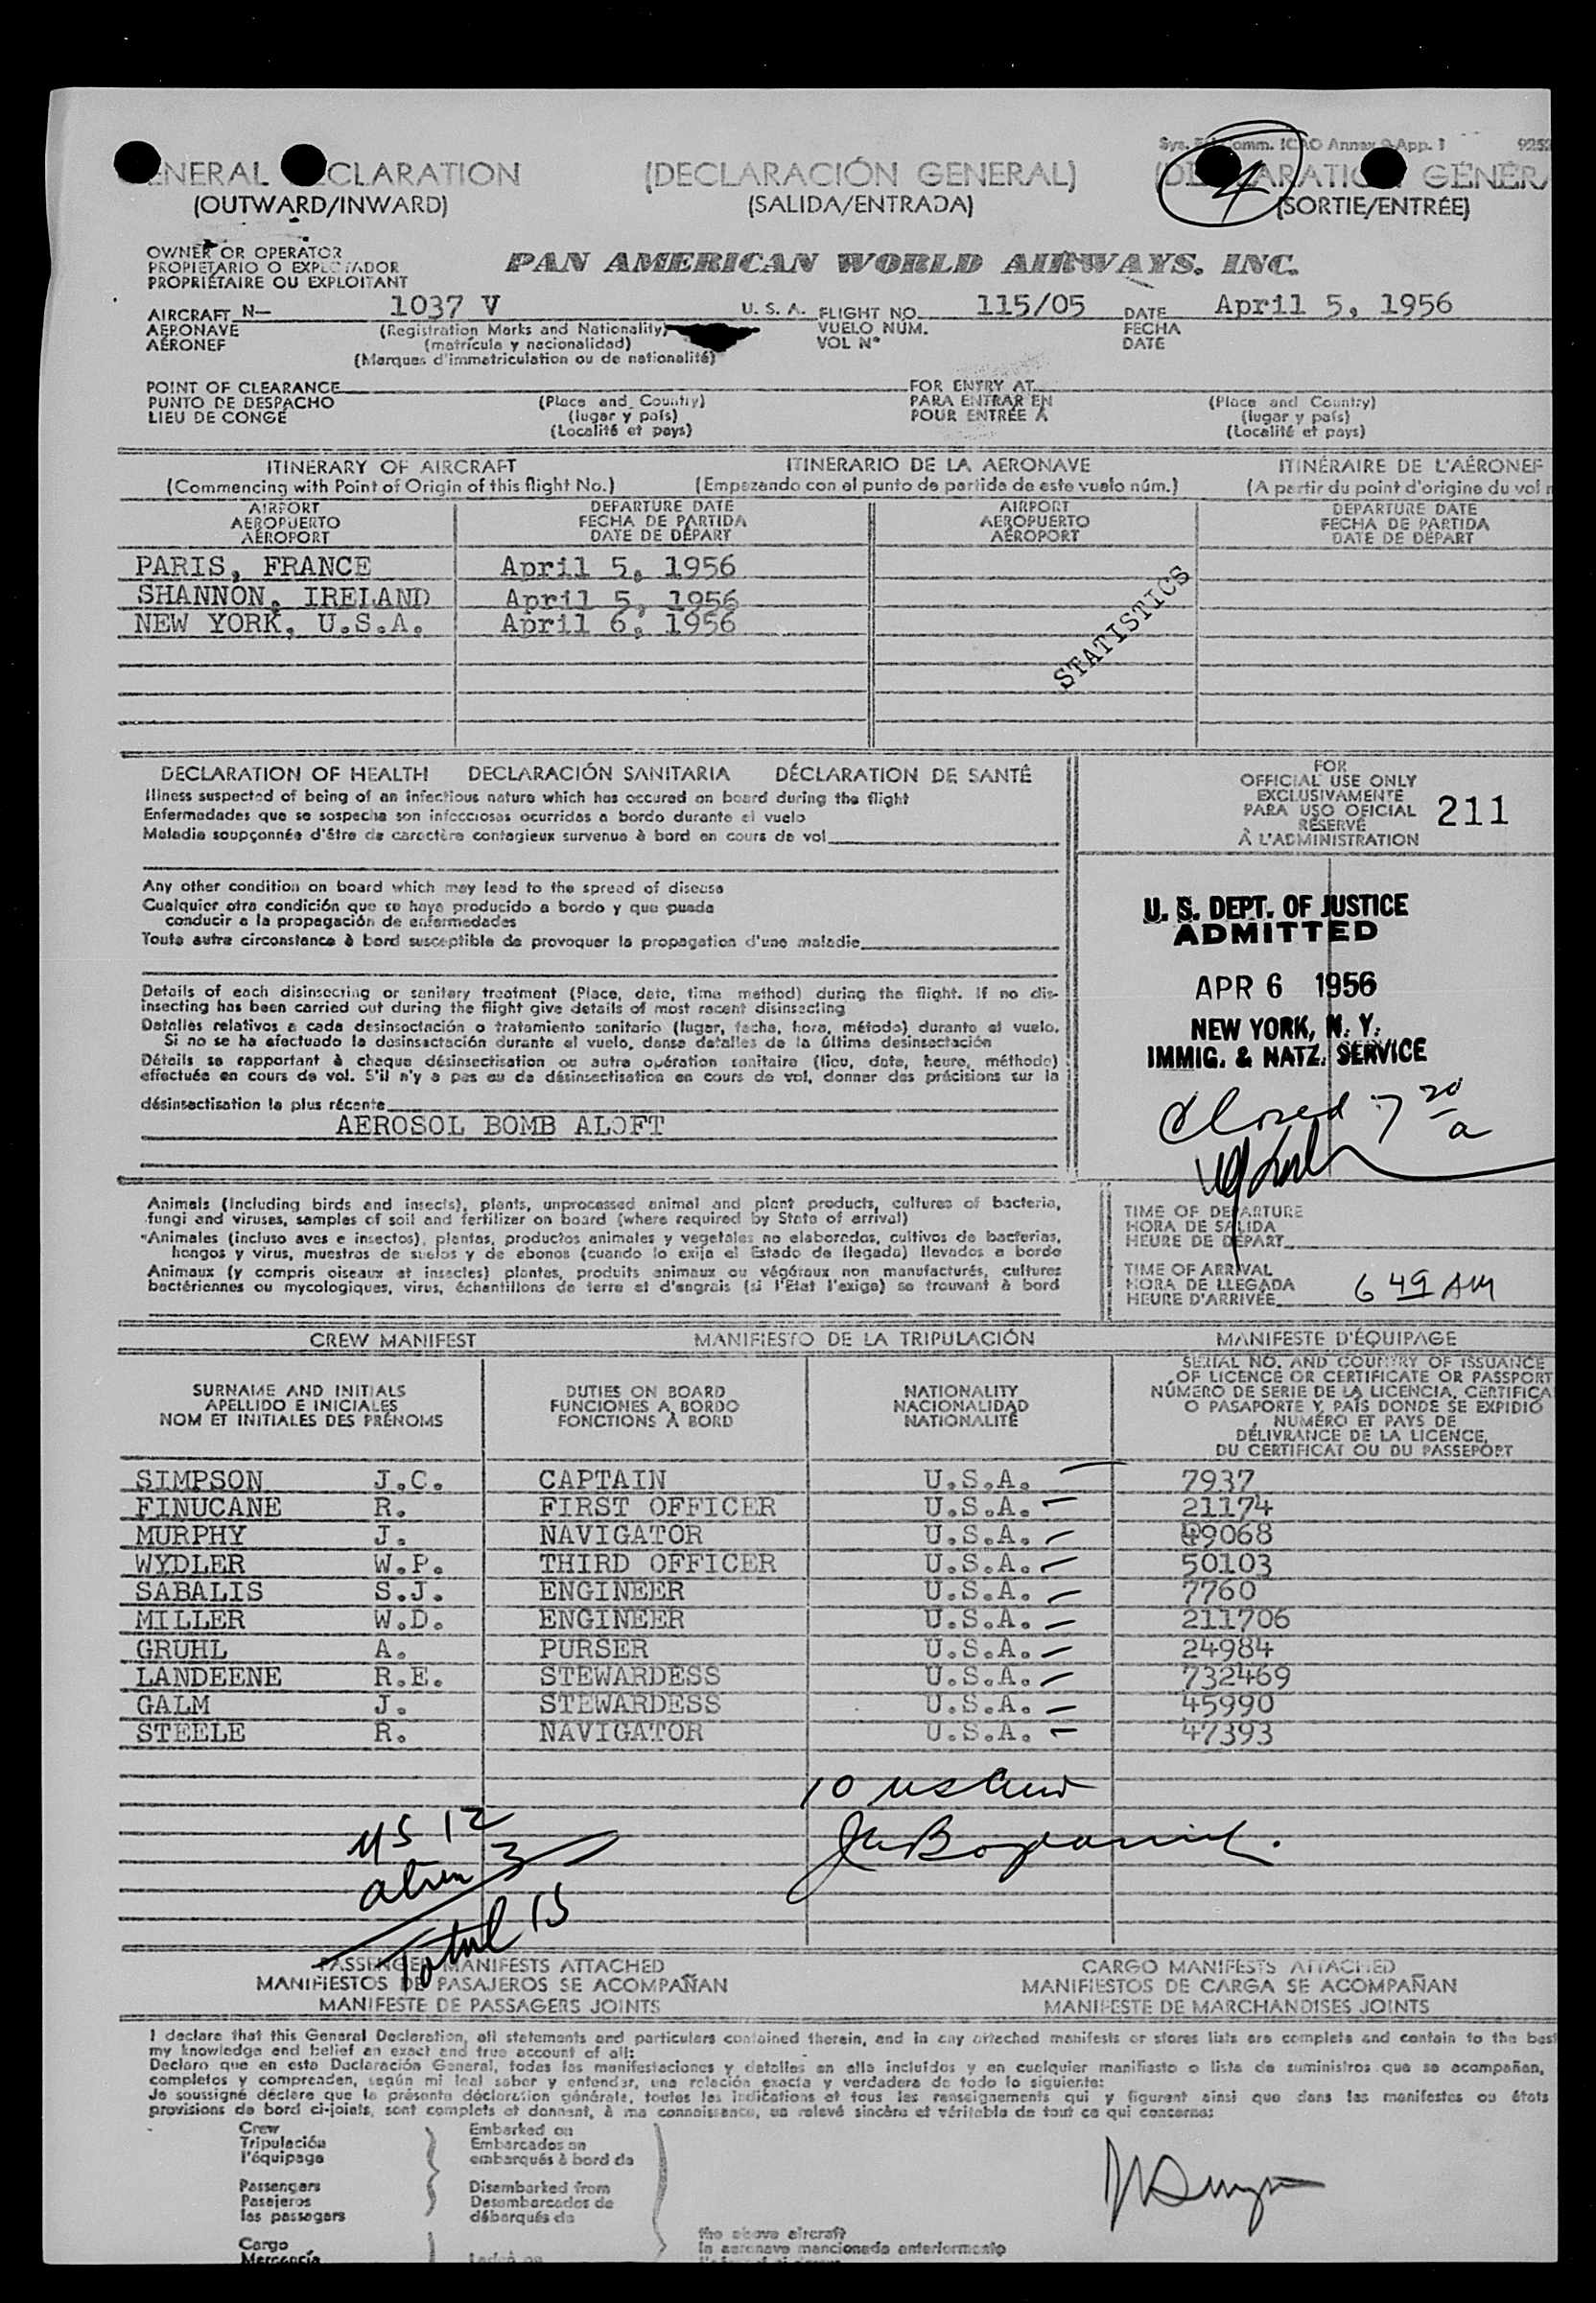 Sys. Comm. ICAO Annex 9 App. 1
GENERAL DECLARATION (DECLARACIÓN GENERAL) (DÉCLARATION GÉNÉR
(OUTWARD/INWARD) (SALIDA/ENTRADA) (SORTIE/ENTRÉE)
4
OWNER OR OPERATOR
PROPIETARIO O EXPLOTADOR
PROPRIÉTAIRE OU EXPLOITANT
PAN AMERICAN WORLD AIRWAYS, INC.
AIRCRAFT N— 1037 V U. S. A. FLIGHT NO. 115/05 DATE April 5, 1956
AERONAVE (Registration Marks and Nationality) VUELO NÚM. FECHA
AÉRONEF (matrícula y nacionalidad) VOL Nº DATE
(Marques d'immatriculation ou de nationalité)
POINT OF CLEARANCE FOR ENTRY AT
PUNTO DE DESPACHO (Place and Country) PARA ENTRAR EN (Place and Country)
LIEU DE CONGÉ (lugar y país) POUR ENTRÉE À (lugar y país)
(Localité et pays) (Localité et pays)
ITINERARY OF AIRCRAFT ITINERARIO DE LA AERONAVE ITINÉRAIRE DE L'AÉRONEF
(Commencing with Point of Origin of this flight No.) (Empezando con el punto de partida de este vuelo núm.) (A partir du point d'origine du vol n
AIRPORT DEPARTURE DATE AIRPORT DEPARTURE DATE
AEROPUERTO FECHA DE PARTIDA AEROPUERTO FECHA DE PARTIDA
AÉROPORT DATE DE DÉPART AÉROPORT DATE DE DÉPART
PARIS, FRANCE April 5, 1956
SHANNON, IRELAND April 5, 1956
NEW YORK, U.S.A. April 6, 1956
STATISTICS
DECLARATION OF HEALTH DECLARACIÓN SANITARIA DÉCLARATION DE SANTÉ
Illness suspected of being of an infectious nature which has occured on board during the flight
Enfermedades que se sospecha son infecciosas ocurridas a bordo durante el vuelo
Maladie soupçonnée d'être de caractère contagieux survenue à bord en cours de vol
Any other condition on board which may lead to the spread of disease
Cualquier otra condición que se haya producido a bordo y que pueda
conducir a la propagación de enfermedades
Toute autre circonstance à bord susceptible de provoquer la propagation d'une maladie
Details of each disinsecting or sanitary treatment (Place, date, time method) during the flight. If no dis-
insecting has been carried out during the flight give details of most recent disinsecting
Detalles relativos a cada desinsectación o tratamiento sanitario (lugar, fecha, hora, método) durante el vuelo.
Si no se ha efectuado la desinsectación durante el vuelo, danse detalles de la última desinsectación
Détails se rapportant à chaque désinsectisation ou autre opération sanitaire (lieu, date, heure, méthode)
effectuée en cours de vol. S'il n'y a pas eu de désinsectisation en cours de vol, donner des précisions sur la
désinsectisation la plus récente
AEROSOL BOMB ALOFT
FOR
OFFICIAL USE ONLY
EXCLUSIVAMENTE
PARA USO OFICIAL
RÉSERVÉ
À L'ADMINISTRATION
211
U. S. DEPT. OF JUSTICE
ADMITTED
APR 6 1956
NEW YORK, N. Y.
IMMIG. & NATZ. SERVICE
Closed 7 20 a
Animals (Including birds and insects), plants, unprocessed animal and plant products, cultures of bacteria,
fungi and viruses, samples of soil and fertilizer on board (where required by State of arrival)
Animales (incluso aves e insectos), plantas, productos animales y vegetales no elaborados, cultivos de bacterias,
hongos y virus, muestras de suelos y de abonos (cuando lo exija el Estado de llegada) llevados a bordo
Animaux (y compris oiseaux et insectes) plantes, produits animaux ou végétaux non manufacturés, cultures
bactériennes ou mycologiques, virus, échantillons de terre et d'engrais (si l'Etat l'exige) se trouvant à bord
TIME OF DEPARTURE
HORA DE SALIDA
HEURE DE DÉPART
TIME OF ARRIVAL
HORA DE LLEGADA
HEURE D'ARRIVÉE 6 49 AM
CREW MANIFEST MANIFIESTO DE LA TRIPULACIÓN MANIFESTE D'ÉQUIPAGE
SURNAME AND INITIALS
APELLIDO E INICIALES
NOM ET INITIALES DES PRÉNOMS
DUTIES ON BOARD
FUNCIONES A BORDO
FONCTIONS À BORD
NATIONALITY
NACIONALIDAD
NATIONALITÉ
SERIAL NO. AND COUNTRY OF ISSUANCE
OF LICENCE OR CERTIFICATE OR PASSPORT
NÚMERO DE SERIE DE LA LICENCIA, CERTIFICA
O PASAPORTE Y PAÍS DONDE SE EXPIDIÓ
NUMÉRO ET PAYS DE
DÉLIVRANCE DE LA LICENCE,
DU CERTIFICAT OU DU PASSEPORT
SIMPSON J.C. CAPTAIN U.S.A. 7937
FINUCANE R. FIRST OFFICER U.S.A. 21174
MURPHY J. NAVIGATOR U.S.A. 49068
WYDLER W.P. THIRD OFFICER U.S.A. 50103
SABALIS S.J. ENGINEER U.S.A. 7760
MILLER W.D. ENGINEER U.S.A. 211706
GRUHL A. PURSER U.S.A. 24984
LANDEENE R.E. STEWARDESS U.S.A. 732469
GALM J. STEWARDESS U.S.A. 45990
STEELE R. NAVIGATOR U.S.A. 47393
10 US Crew
US 12
alien 3
Total 15
PASSENGER MANIFESTS ATTACHED CARGO MANIFESTS ATTACHED
MANIFIESTOS DE PASAJEROS SE ACOMPAÑAN MANIFIESTOS DE CARGA SE ACOMPAÑAN
MANIFESTE DE PASSAGERS JOINTS MANIFESTE DE MARCHANDISES JOINTS
I declare that this General Declaration, all statements and particulars contained therein, and in any attached manifests or stores lists are complete and contain to the best
my knowledge and belief an exact and true account of all:
Declaro que en esta Declaración General, todas las manifestaciones y detalles en ella incluídos y en cualquier manifiesto o lista de suministros que se acompañan,
completos y comprenden, según mi leal saber y entender, una relación exacta y verdadera de todo lo siguiente:
Je soussigné déclare que la présente déclaration générale, toutes les indications et tous les renseignements qui y figurent ainsi que dans les manifestes ou états
provisions de bord ci-joints, sont complets et donnent, à ma connaissance, un relevé sincère et véritable de tout ce qui concerne:
Crew Embarked on
Tripulación Embarcados en
l'équipage embarqués à bord de
Passengers Disembarked from
Pasajeros Desembarcados de
les passagers débarqués de
Cargo the above aircraft
Mercancía la aeronave mencionada anteriormente